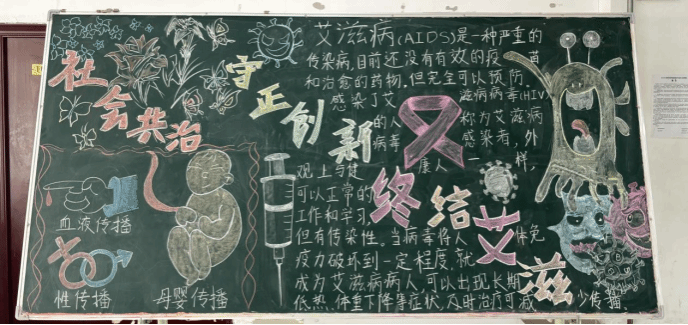 社会共治
守正创新
终结艾滋
血液传播
性传播
母婴传播
艾滋病(AIDS)是一种严重的
传染病,目前还没有有效的疫苗
和治愈的药物,但完全可以预防。
感染了艾滋病病毒(HIV)
的人称为艾滋病
病毒感染者,外
观上与健康人一样,
可以正常的
工作和学习,
但有传染性。当病毒将人体免
疫力破坏到一定程度,就
成为艾滋病病人,可以出现长期
低热、体重下降等症状,及时治疗可减少传播。